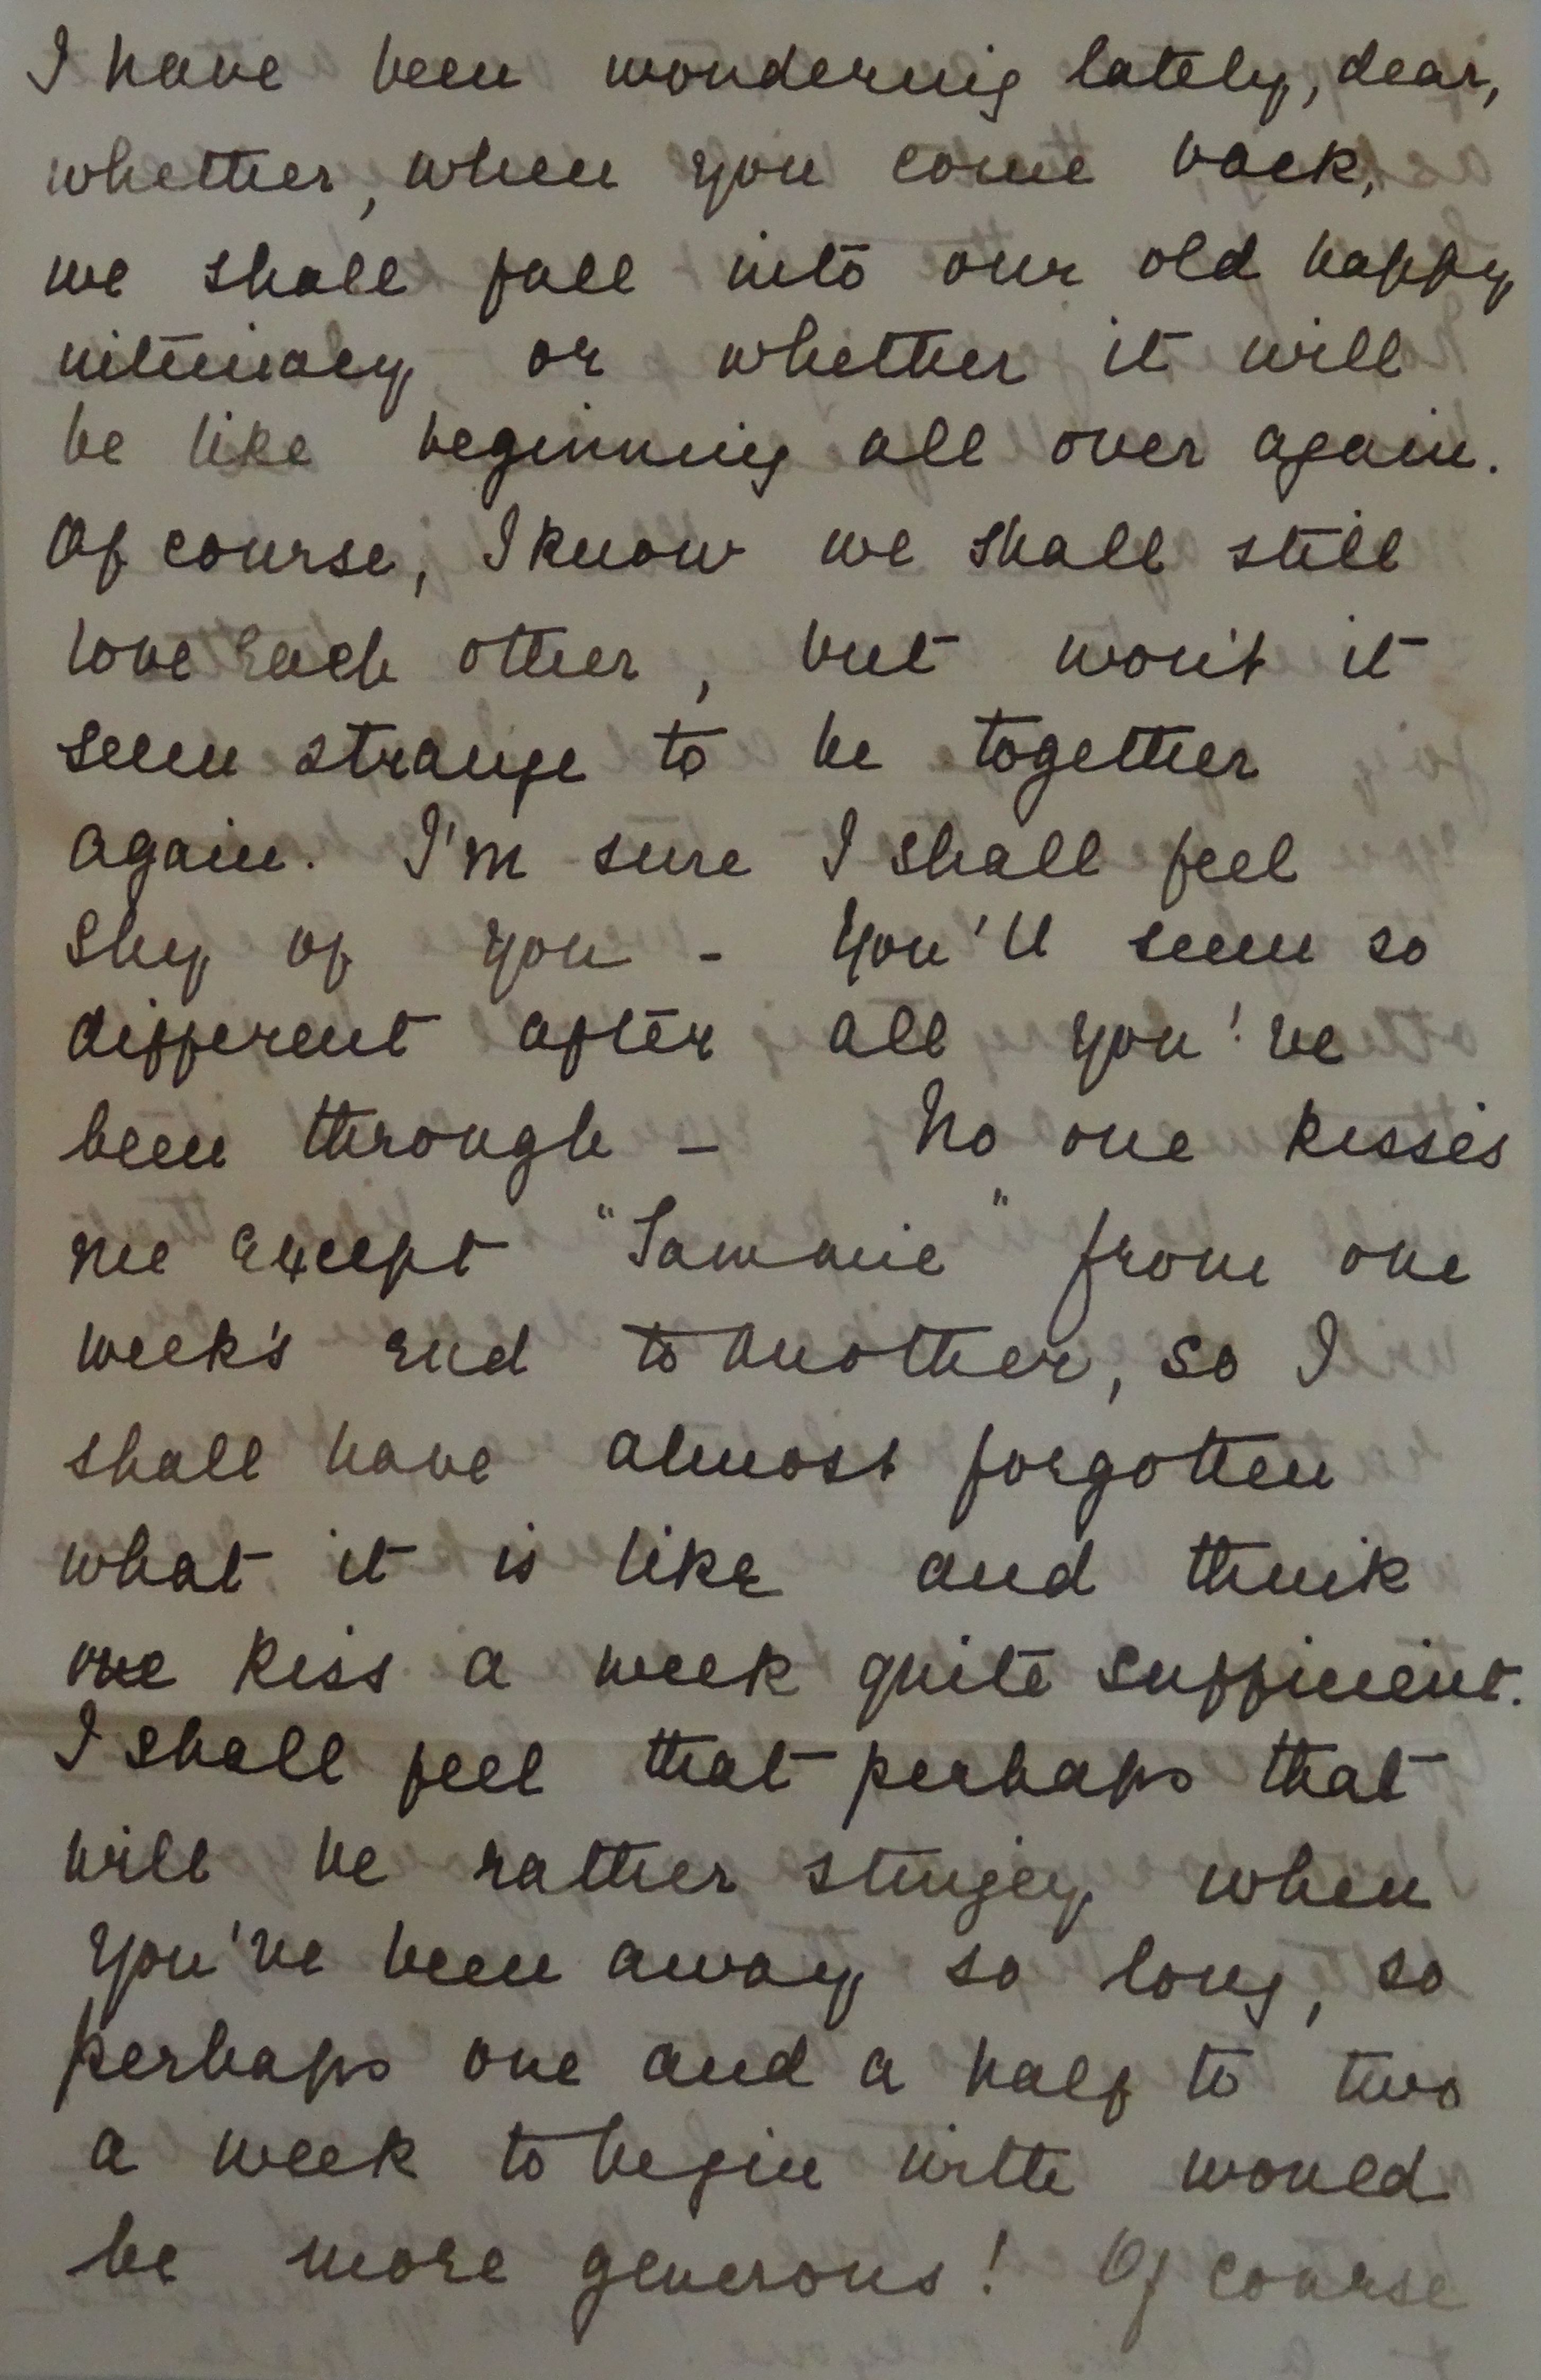 I have been wondering lately, dear,
whether, when you come back,
we shall fall into our old happy
intimacy or whether it will
be like beginning all over again.
Of course, I know we shall still
love each other, but won't it
seem strange to be together
again. I'm sure I shall feel
shy of you - you'll seem so
different after all you've
been through - No one kisses
me except "Sammie" from one
week's end to another, so I
shall have almost forgotten
what it is like and think
one kiss a week quite sufficient.
I shall feel that perhaps that
will be rather stingey when
you've been away so long, so
perhaps one and a half to two
a week to begin with would
be more generous! Of course